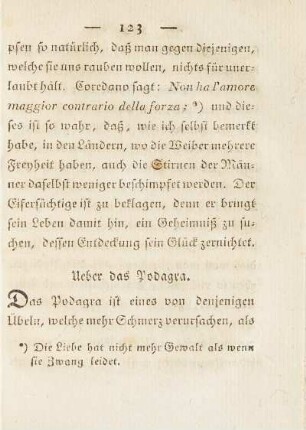 — 123 —
pfen so natürlich, daß man gegen diejenigen,
welche sie uns rauben wollen, nichts für uner-
laubt hält. Coredano sagt: Non ha l'amore
maggior contrario della forza; *) und die-
ses ist so wahr, daß, wie ich selbst bemerkt
habe, in den Ländern, wo die Weiber mehrere
Freyheit haben, auch die Stirnen der Män-
ner daselbst weniger beschimpfet werden. Der
Eifersüchtige ist zu beklagen, denn er bringt
sein Leben damit hin, ein Geheimniß zu su-
chen, dessen Entdeckung sein Glück zernichtet.
Ueber das Podagra.
Das Podagra ist eines von denjenigen
Übeln, welche mehr Schmerz verursachen, als
*) Die Liebe hat nicht mehr Gewalt als wenn
sie Zwang leidet.